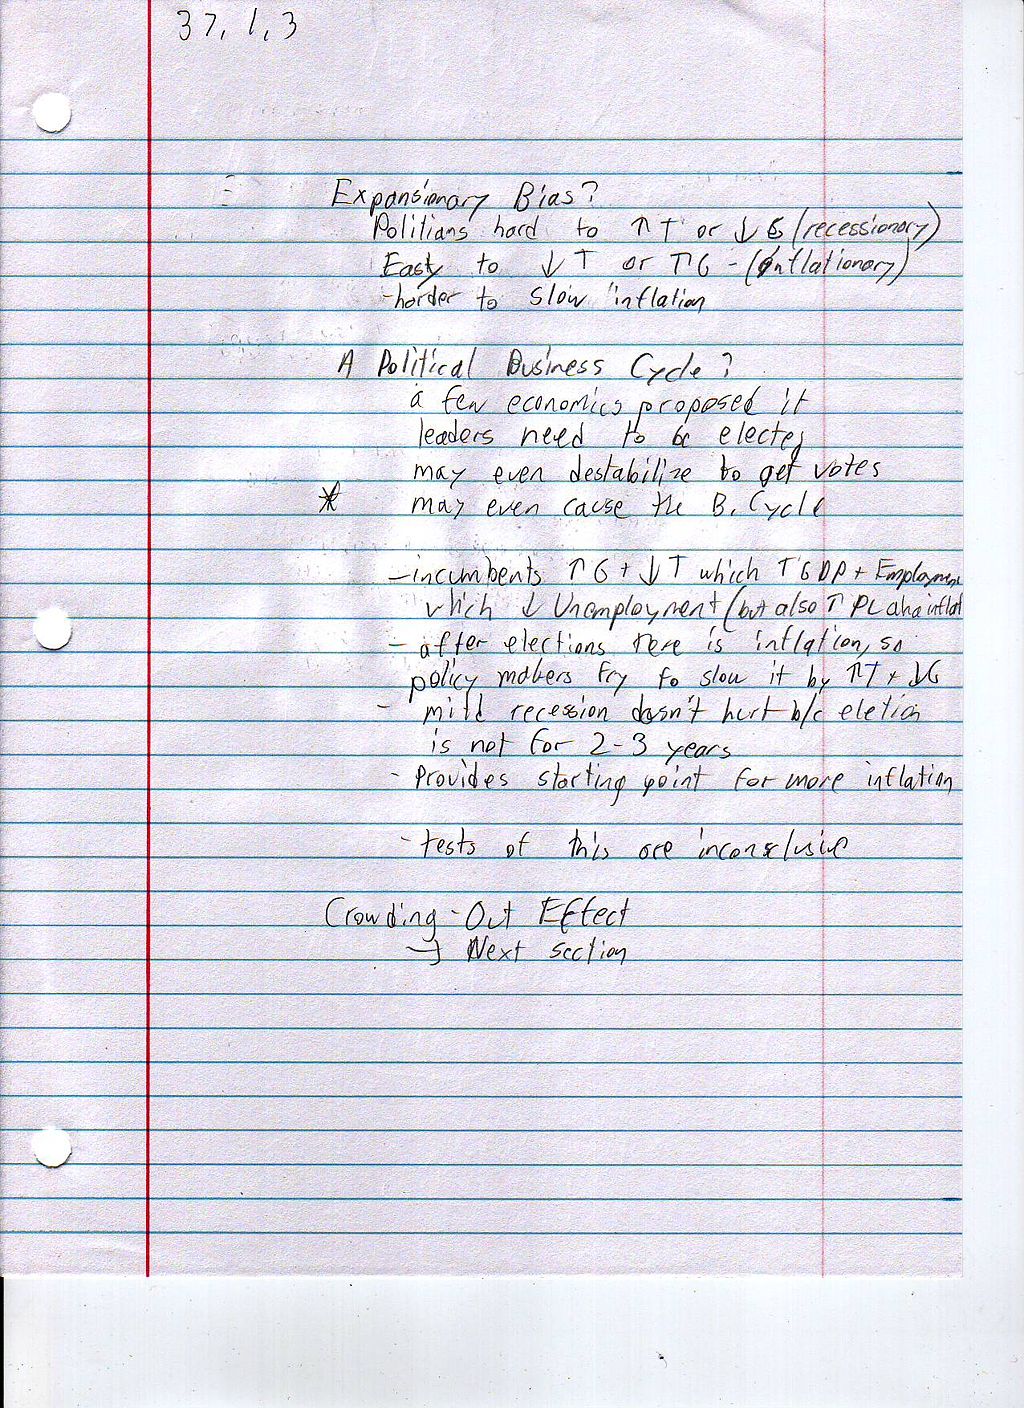 37, 1, 3
Expansionary Bias?
Politians hard to ↑T or ↓G (recessionary)
Easy to ↓T or ↑G - (inflationary)
- harder to slow inflation
A Political Business Cycle?
a few economics proposed it
leaders need to be elected
may even destabilize to get votes
* may even cause the B. Cycle
- incumbents ↑G + ↓T which ↑GDP + Employmen
which ↓ Unemployment (but also ↑ PL aka inflat
- after elections there is inflation, so
policy makers try to slow it by ↑T + ↓G
- mild recession doesn't hurt b/c eletion
is not for 2-3 years
- Provides starting point for more inflation
- tests of this are inconclusive
Crowding-Out Effect
→ Next section